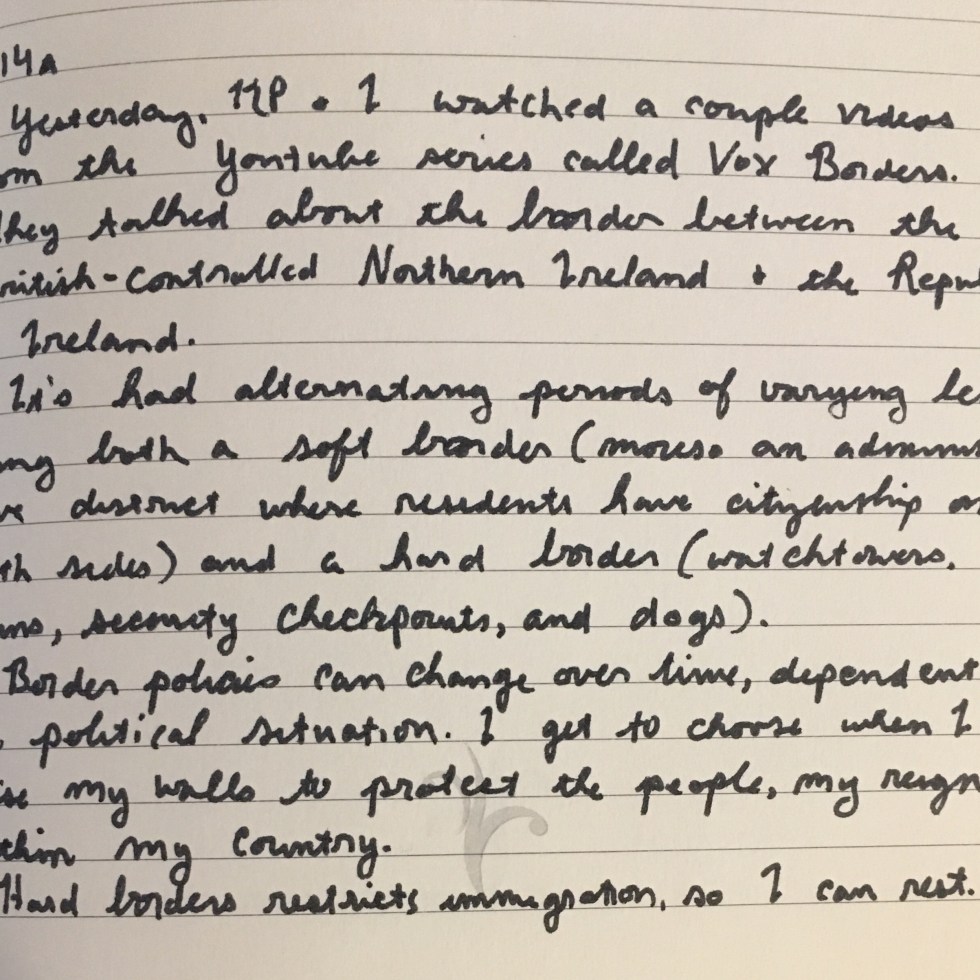 14A
Yesterday, HP • I watched a couple videos
om the Youtube series called Vox Borders.
hey talked about the border between the
ritish-controlled Northern Ireland + the Repu
Ireland.
It's had alternating periods of varying le
ng both a soft border (moreso an adminis
ve district where residents have citizenship o
th sides) and a hard border (watchtowers,
ms, security checkpoints, and dogs).
Border policies can change over time, dependent
political situation. I get to choose when I
se my walls to protect the people, my reign
thin my country.
Hard borders restricts immigration, so I can rest.